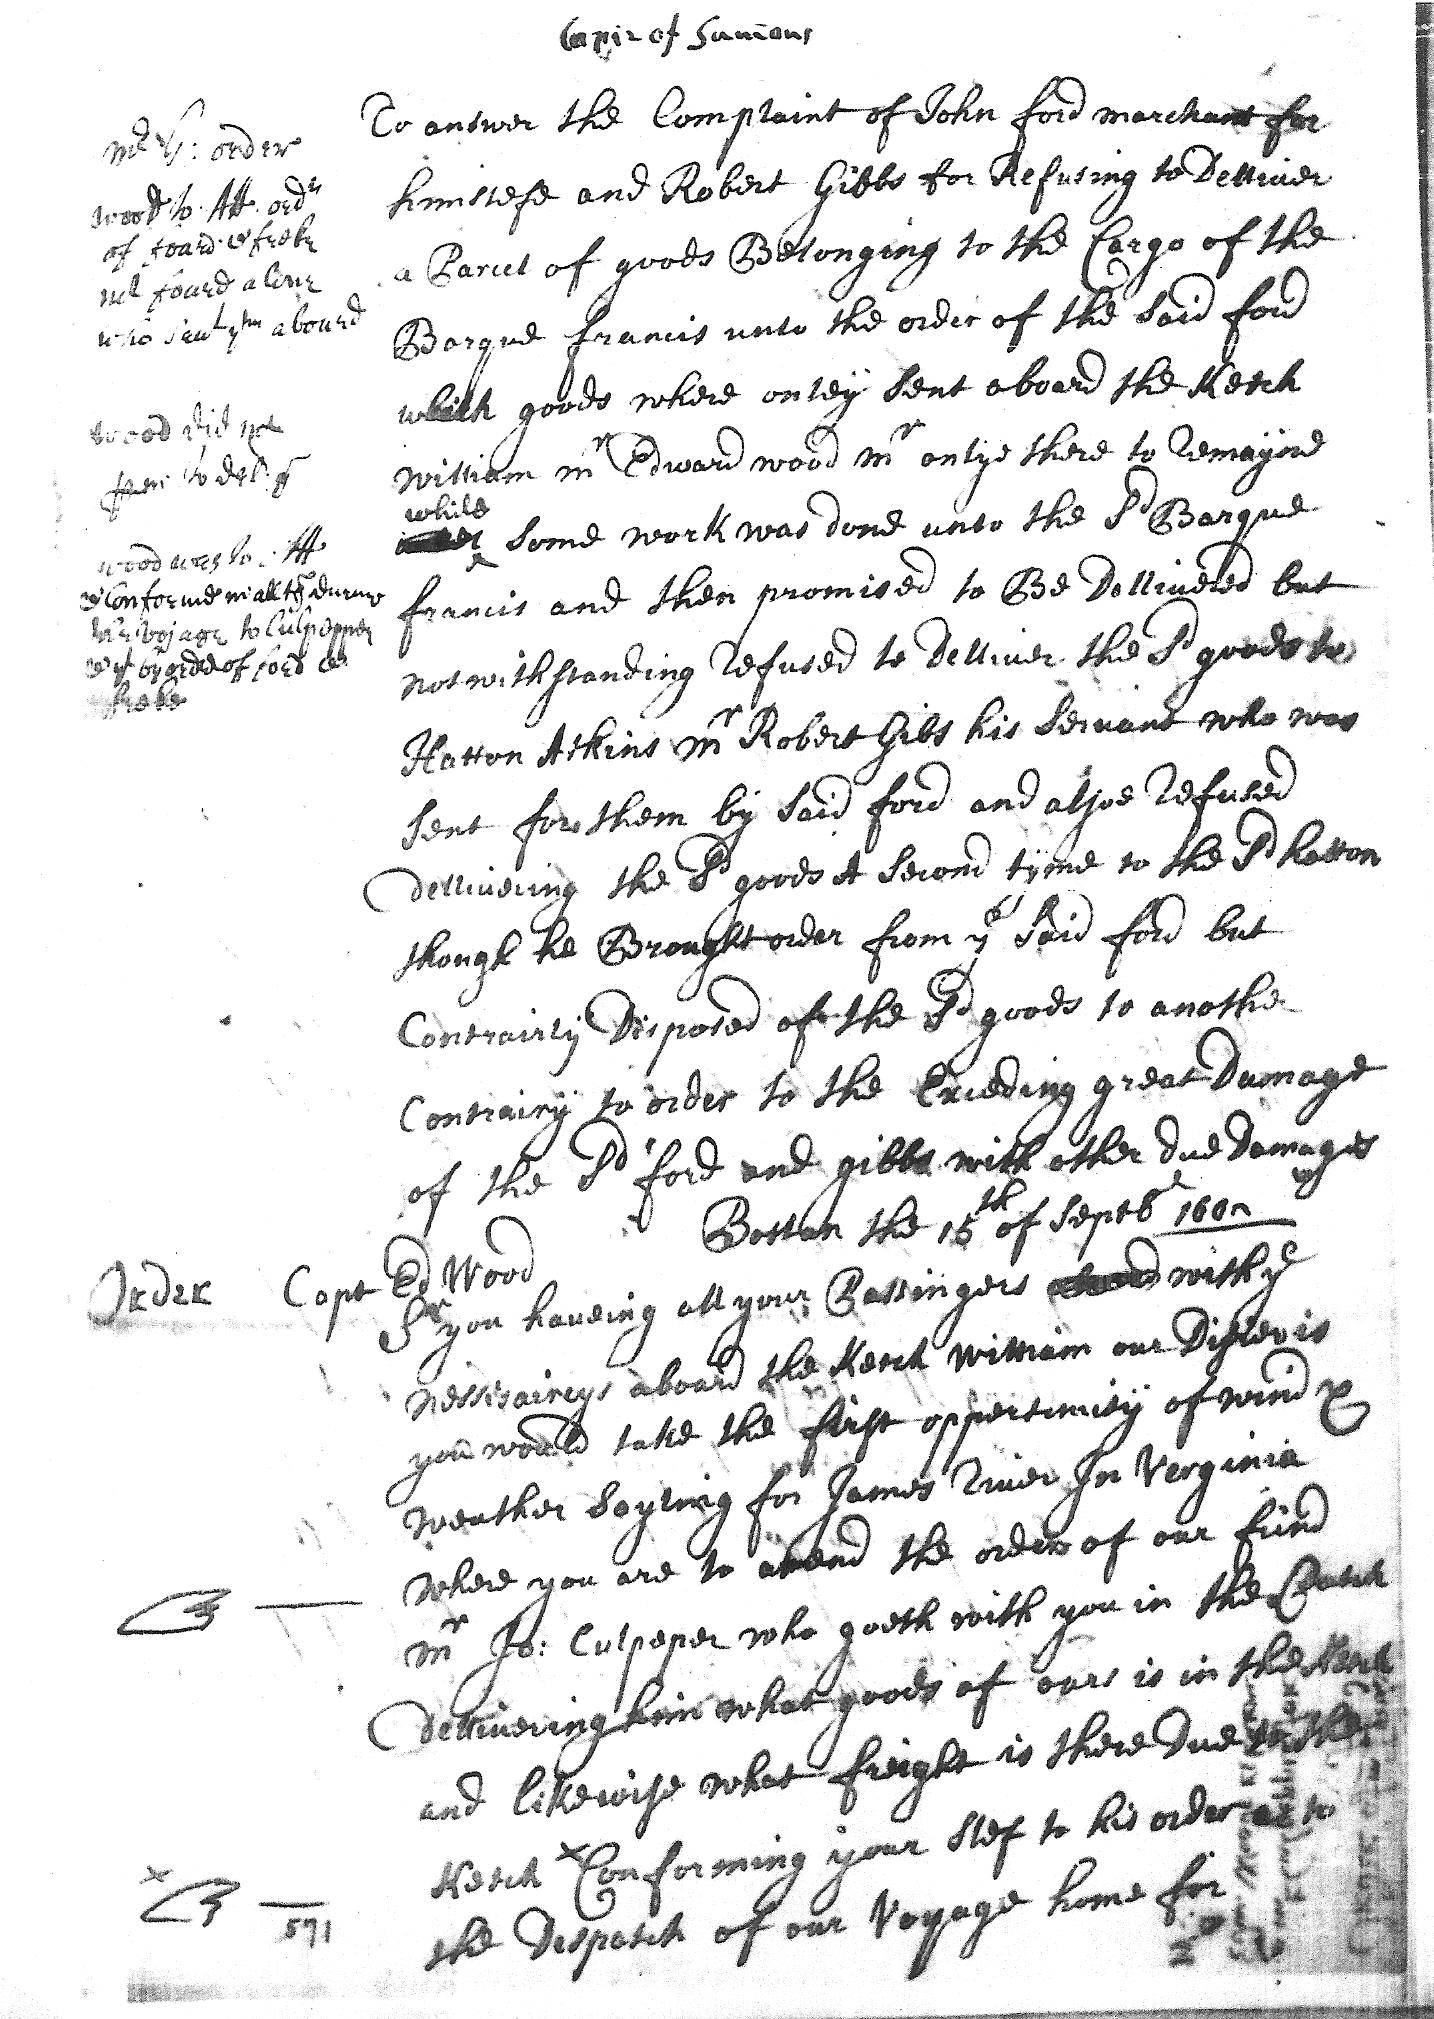 Copie of Sumons
To answer the Complaint of John ford marchant for
himselfe and Robert Gibbs for Refusing to Delliuer
a Parcel of goods Belonging to the Cargo of the
Barque francis unto the order of the Said ford
which goods where onley Sent aboard the Ketch
william mr Edward wood mr onlye there to Remayne
while
Some work was done unto the Sd Barque
francis and then promised to Be Dellivered but
notwithstanding Refused to Delliuer the Sd goods to
Hatton Atkins mr Robert Gibs his Servant who was
Sent for them by Said ford and alsoe Refused
Dellivering the Sd goods A Second tyme to the Sd hatton
though he Brought order from ye Said ford but
Contrairly Disposed of the Sd goods to anothe
Contrairy to order to the Exceding great Damage
of the Sd ford and gibbs with other due Damages
Boston the 15th of Septbr
Order Capt Ed Wood
Sr you haueing all your Passingers with ye
nessisaireys aboard the Ketch William our Disier is
you would take the first oppertunity of wind &
weather Sayling for James River In Verginia
where you are to atend the orders of our frind
mr Jo: Culpeper who goeth with you in the Catch
Dellivering him what goods of ours is in the Ketch
and likewise what freight is there Due to the
Ketch x Conforming your Slef to his order as to
the Dispatch of our Voyage home for
md G: order
wood to Att. ordr
of foard &
not foard alone
who sent ym aboard
wood did not
to del.
wood was to Att
& Conforme in all
vojage to Culpepper
& by order of ford &
x
591